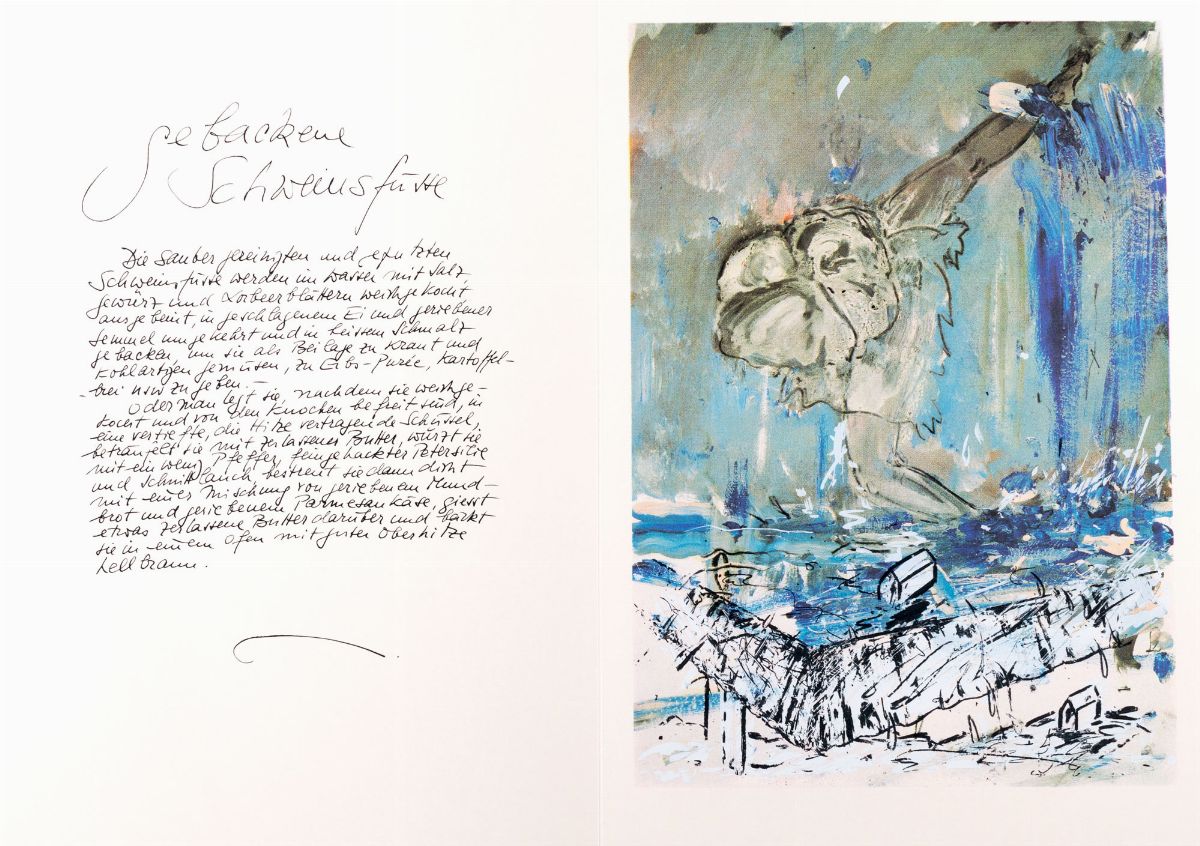 gebackene
Schweinsfüsse
Die sauber gereinigten und geputzten
Schweinsfüsse werden im Wasser mit Salz
gewürz und Lorbeerblättern weichgekocht
ausgebeint, in geschlagenem Ei und geriebener
Semmel umgekehrt und in heissem Schmalz
gebacken, um sie als Beilage zu Kraut und
Kohlartigen gemüsen, zu Erbs-Purée, Kartoffel-
-brei usw zu geben. –
Oder man legt sie, nachdem sie weichge-
kocht und von den Knochen befreit sind, in
eine vertiefte, die Hitze vertragende Schüssel,
beträufelt sie mit zerlassener Butter, würzt sie
mit ein wenig Pfeffer, feingehackter Petersilie
und Schnittlauch bestreut sie dann dicht
mit einer Mischung von geriebenem Mund-
brot und geriebenem Parmesankäse, giesst
etwas zerlassene Butter darüber und bäckt
sie in einem Ofen mit guter Oberhitze
hellbraun.